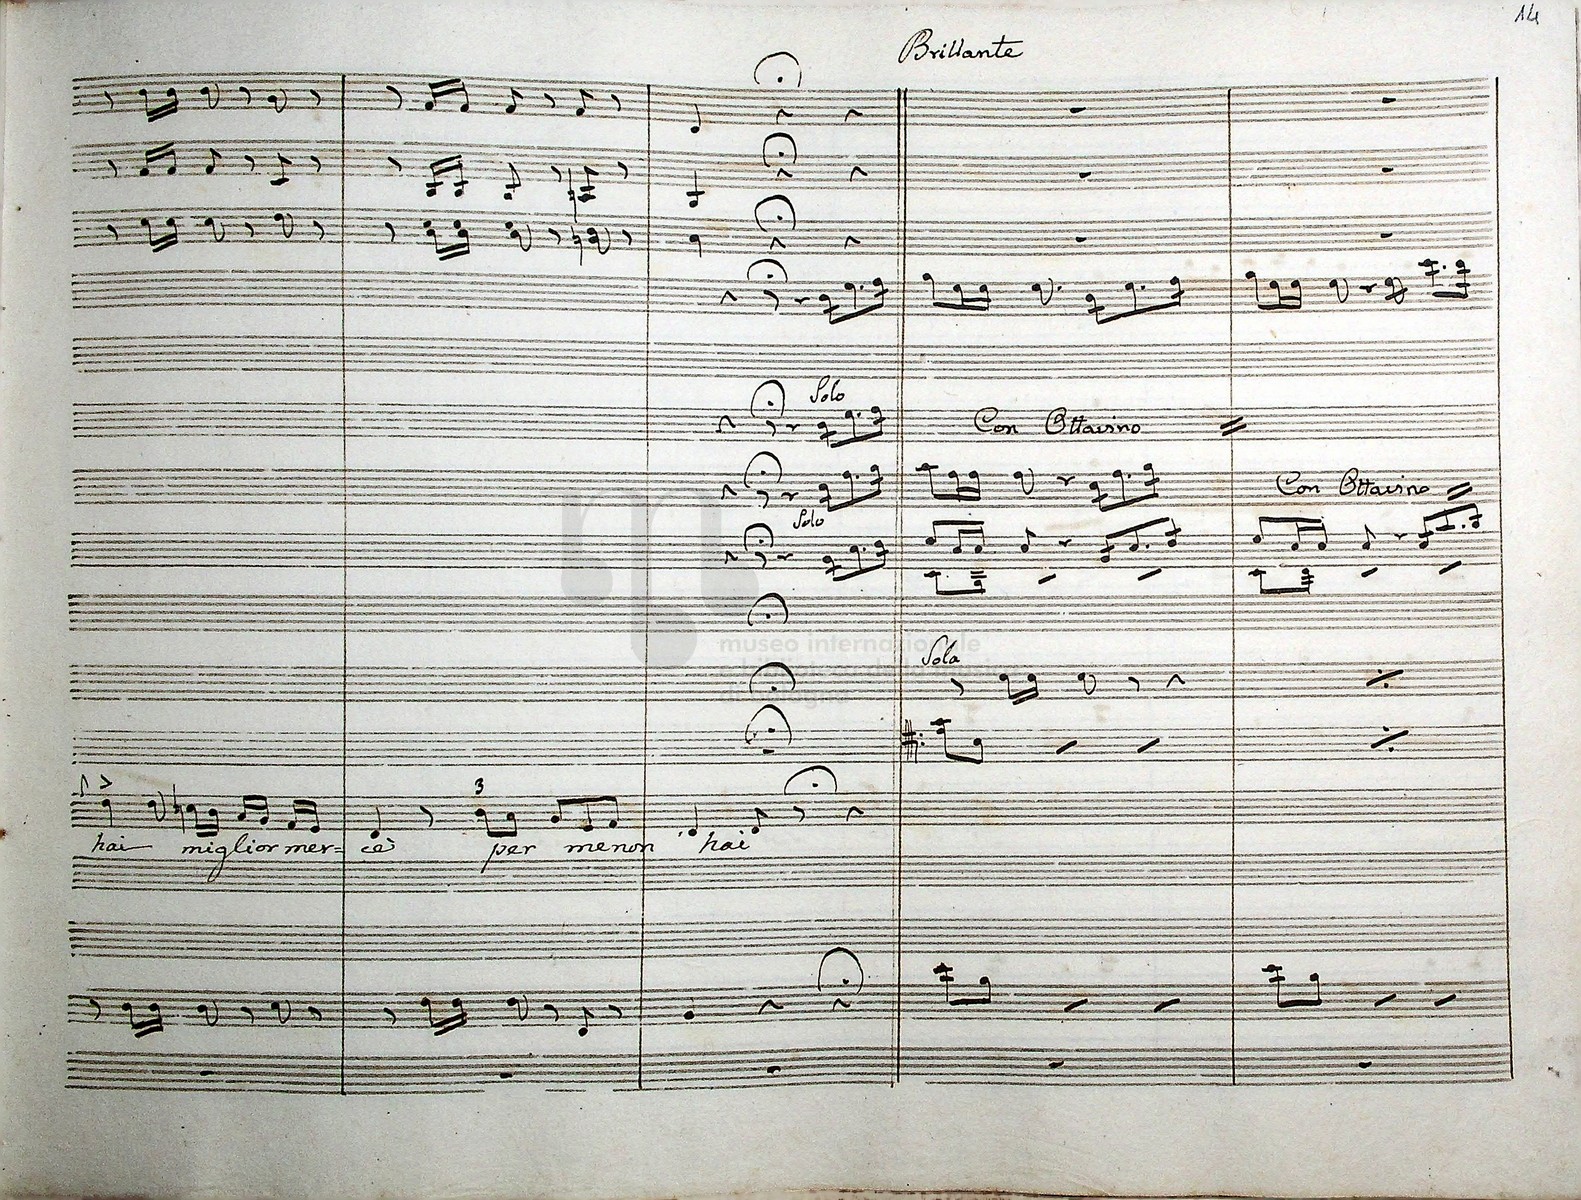 14
Brillante
Solo
Con Ottavino
Con Ottavino
Solo
museo internazionale
e biblioteca della musica
di bologna
Sola
3
hai miglior mer= cè per me non hai